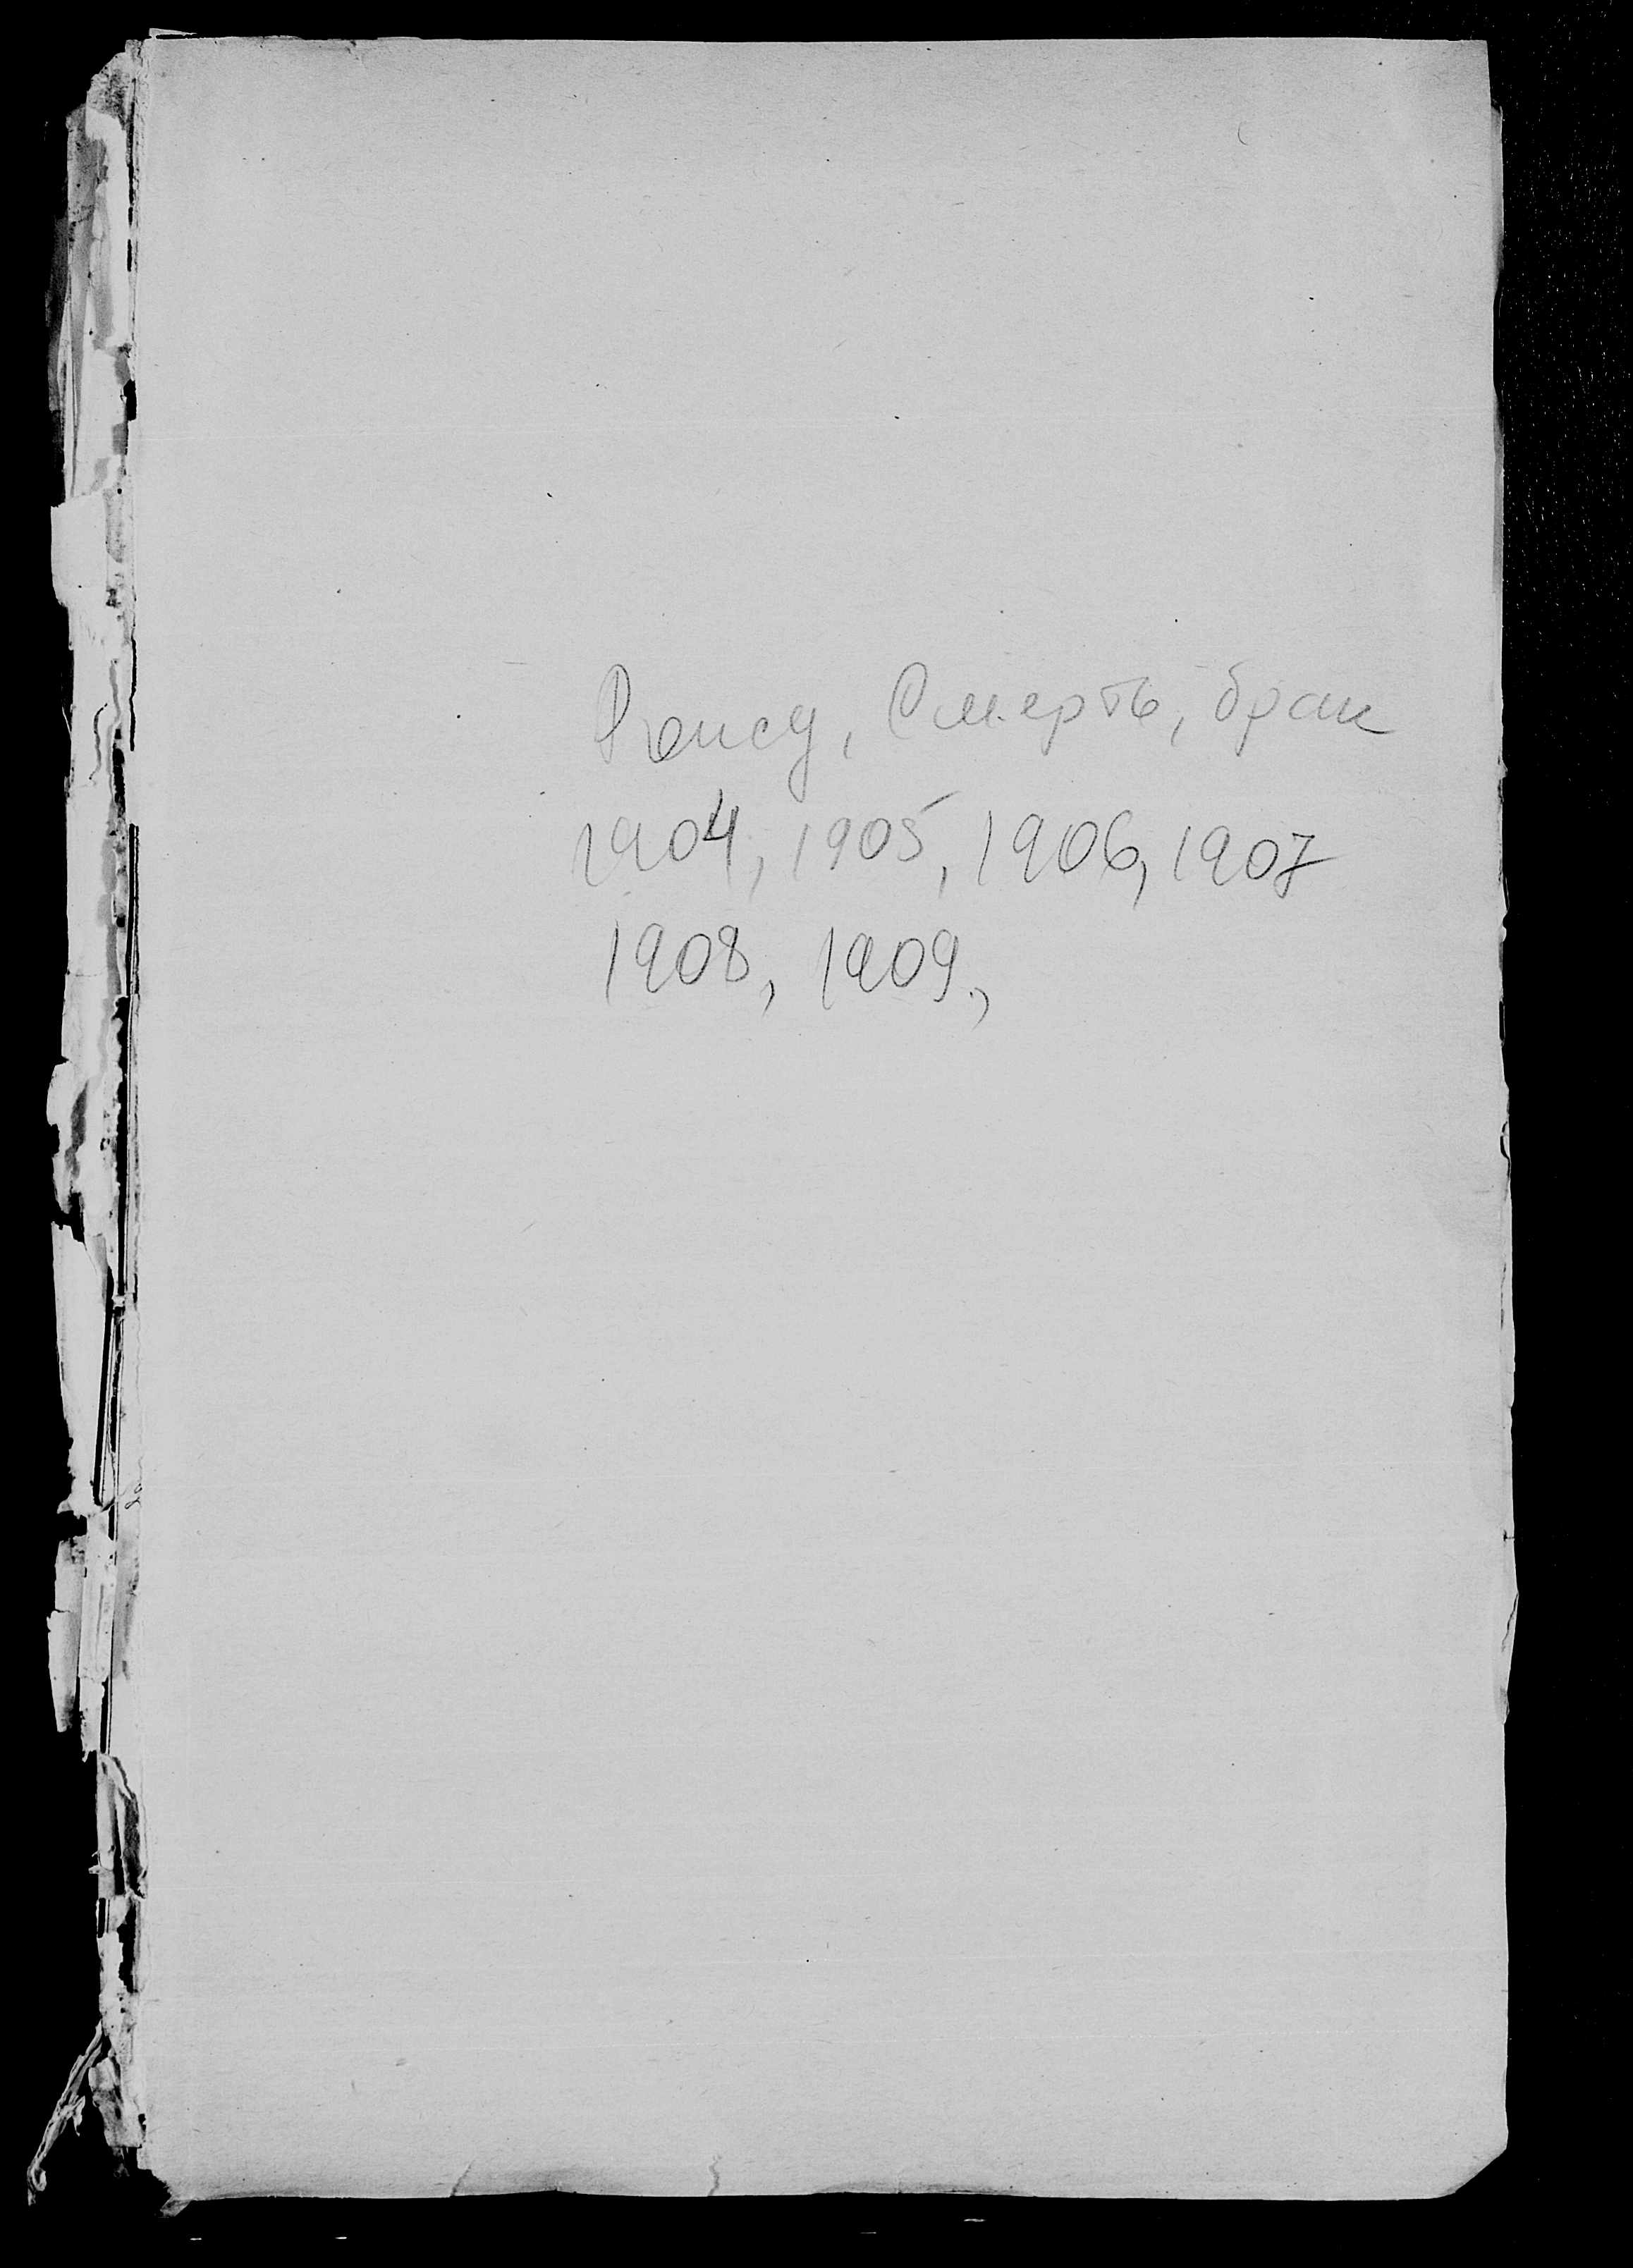 Рожд, Смерть, брак
1904, 1905, 1906, 1907
1908, 1909.,